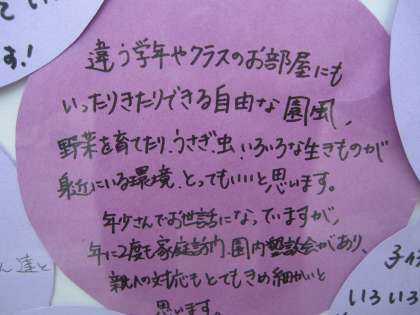 違う学年やクラスのお部屋にも
いったりきたりできる自由な園風、
野菜を育てたり、うさぎ、虫、いろいろな生きものが
身近にいる環境、とってもいいと思います。
年少さんでお世話になっていますが、
年に2度も家庭訪問、園内懇談会があり、
親への対応もとてもきめ細かいと
思います。
て い
す!
ん 達と
子供
いろ いろ